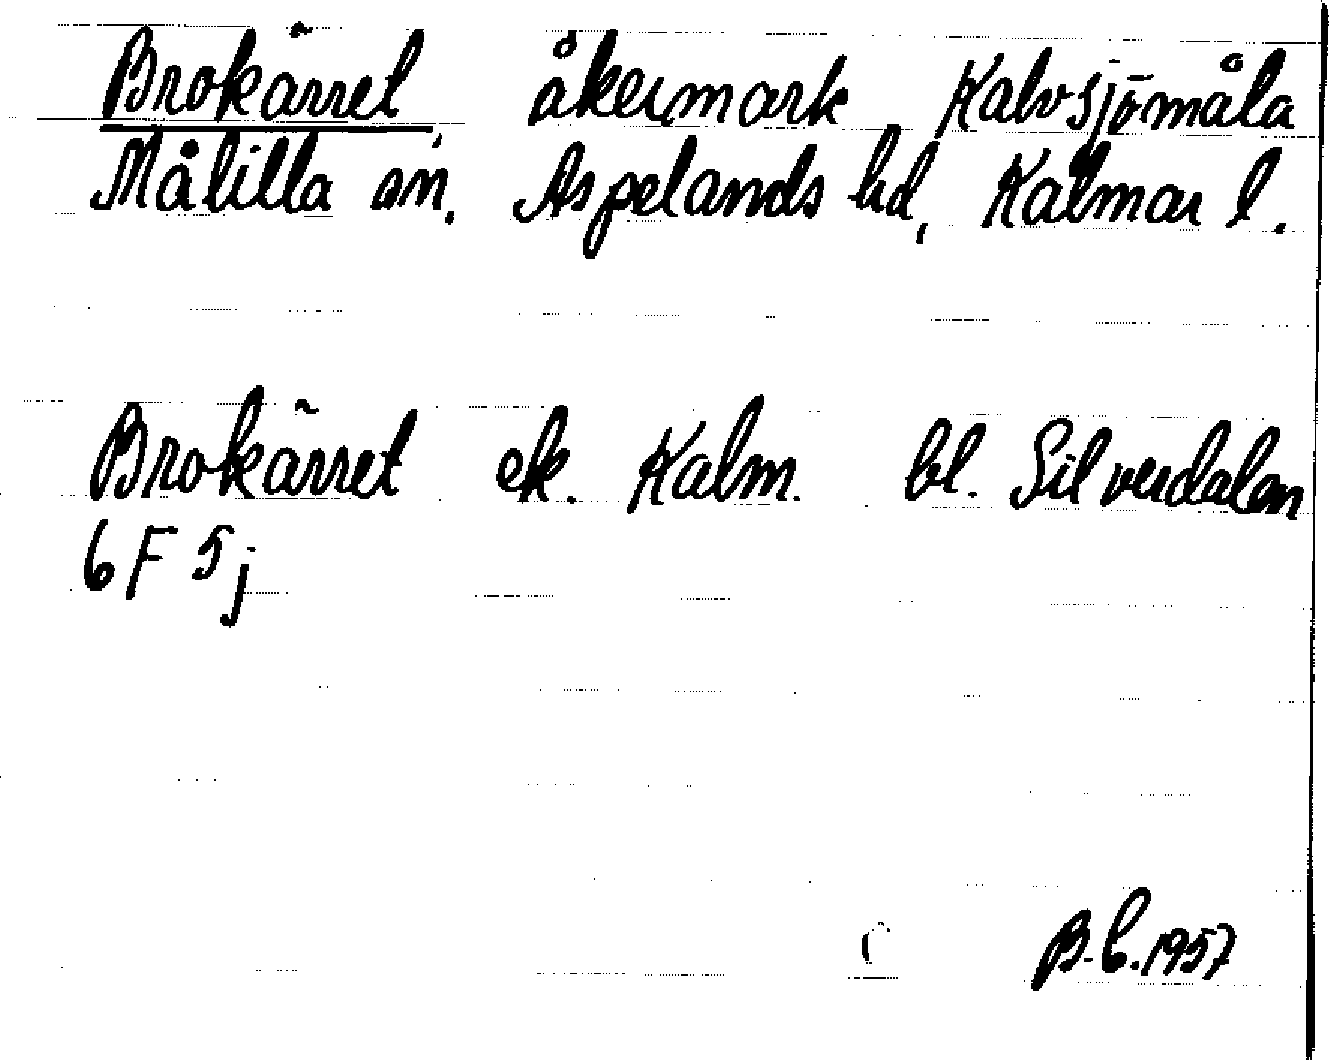 Brokärret, åkermark Kalvsjömåla
Målilla sn. Aspelands hd, Kalmar l.
Brokärret ek. Kalm. bl. Silverdalen
6F 5j
B-b. 1957